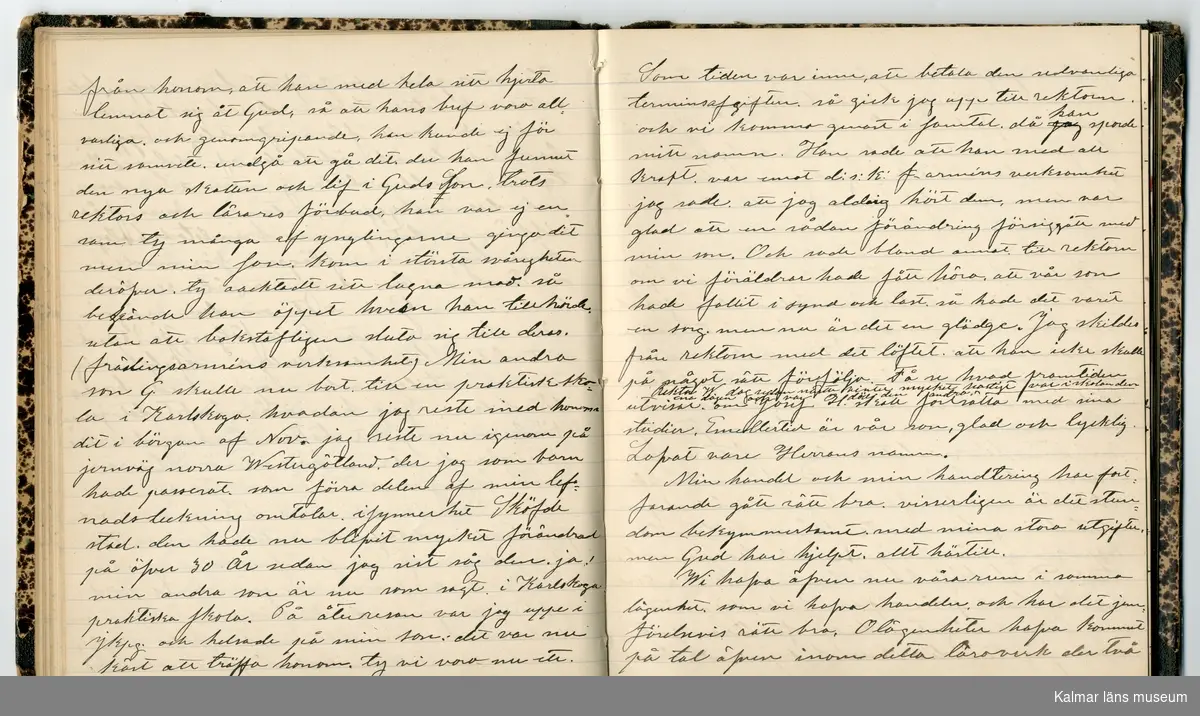 från honom, att han med hela sitt hjerta
lemnat sig åt Gud, så att hans bref voro all-
varliga. och genomgripande, han kunde ej för
sitt samvete. undgå att gå dit. der han funnit
den nya skatten och lif i Guds Son. trots
rektors och lärares förbud, han var ej en-
sam ty många af ynglingarne gingo dit
men min Son. kom i största svårigheten
deröfver. ty aacktadt sitt lugna mod. så
begärde han öppet hvem han tillhörde.
utan att bokstafligen sluta sig till deras.
(frälsningsarméns verksamhet) Min andra
son G skulle nu bort. till en praktisk sko-
la i Karlskoga. hvadan jag reste med honom
dit i början af Nov. jag reste nu igenom på
jernväg norra Westergötland, der jag som barn
hade passerat. som förra delen af min lef-
nadsteckning omtalar. isynnerhet Sköfde
stad. den hade nu blifvit mycket förändrad
på öfver 30 År sedan jag sist såg den. ja!
min andra son är nu som sagt. i Karlskoga
praktiska skola. På återresan var jag uppe i
Jkpg. och helsade på min son: det var nu
kärt att träffa honom, ty vi voro nu ett.
Som tiden var inne, att betala den sedvanliga
terminsafgiften. så gick jag upp till rektorn.
och vi kommo genast i samtal. då jag han sporde
mitt namn. Han sade att han med all
kraft. var emot d:s:k: f armins verksamhet
jag sade. att jag aldrig hört dem, men var
glad att en sådan förändring försiggått med
min son. Och sade bland annat. till rektorn
om vi föräldrar hade fått höra, att vår son
hade fallit i synd och last. så hade det varit
en sorg. men nu är det en glädge. Jag skildes
från rektorn med det löftet. att han icke skulle
på något sätt förfölja. Få se hvad framtiden
rektor W dog sedan nästa vinter mycket hastigt var i skolan den
ena dagen och var död den andra
utvisar. om Josef H. skall fortsätta med sina
studier. Emellertid är vår son, glad och lycklig.
Lofvat vare Herrans namn.
Min handel och min handtering har fort-
farande gått rätt bra. visserligen är det stun-
dom bekymmersamt. med mina stora utgifter.
men Gud har hjelpt. allt härtill.
Wi hafva äfven nu våra rum i samma
lägenhet. som vi hafva handeln. och har det jem-
förelsevis rätt bra. Olägenheter hafva kommit
på tal äfven inom detta läroverk der två
Kalmar läns museum